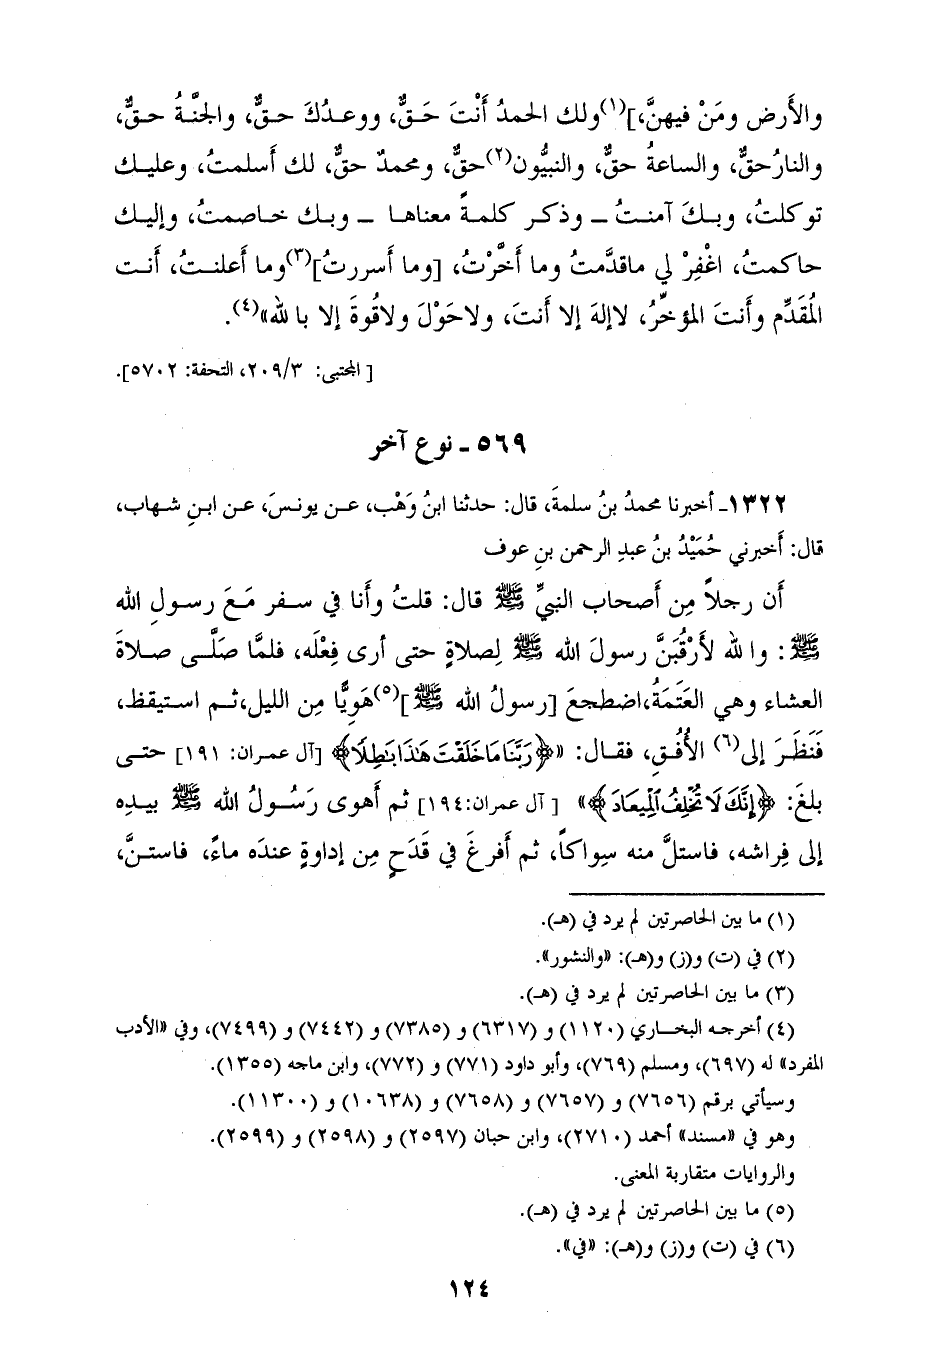 والأَرض ومَنْ فيهنَّ،](١)ولك الحمدُ أَنْتَ حَـقٌّ، ووعـدُكَ حـقٌّ، والجنَّـةُ حـقٌّ،
والنارُحقٌّ، والساعةُ حقٌّ، والنبيُّون(٢)حقٌّ، ومحمدٌ حقٌّ، لك أَسلمتُ، وعليـك
توكلتُ، وبـكَ آمنـتُ ــ وذكـر كلمـةً معناهـا ــ وبـك خـاصمتُ، وإليـك
حاكمتُ، اغْفِرْ لي ماقدَّمتُ وما أَخَّرْتُ، [وما أَسررتُ](٣)وما أَعلنـتُ، أَنـت
المُقَدِّم وأَنتَ المؤخِّرُ، لاإلهَ إلا أَنتَ، ولاحَوْلَ ولاقُوةَ إلا با لله»(٤).
[ المجتبى: ٢٠٩/٣، التحفة: ٥٧٠٢].
٥٦٩ ـ نوع آخر
١٣٢٢ـ أخبرنا محمدُ بنُ سلمةَ، قال: حدثنا ابنُ وَهْب، عـن يونـسَ، عـن ابـنِ شـهاب،
قال: أَخبرني حُمَيْدُ بنُ عبدِ الرحمن بنِ عوف
أَن رجلاً مِن أَصحاب النبيِّ ﷺ قال: قلتُ وأَنا في سـفر مَـعَ رسـولِ الله
ﷺ: وا لله لأَرْقُبَنَّ رسولَ الله ﷺ لِصلاةٍ حتى أَرى فِعْلَه، فلمَّا صَلَّـى صـلاةَ
العشاء وهي العَتَمَةُ،اضطجعَ [رسولُ الله ﷺ](٥)هَوِيًّا مِن الليل،ثـم استيقظ،
فَنَظَرَ إلى(٦) الأُفُـقِ، فقـال: «﴿رَبَّنَا مَا خَلَقْتَ هَذَا بَاطِلًا﴾ [آل عمران: ١٩١] حتـى
بلغَ: ﴿إِنَّكَ لَا تُخْلِفُ الْمِيعَادَ﴾» [ آل عمران:١٩٤] ثم أَهوى رَسُـولُ الله ﷺ بيـدِه
إلى فِراشه، فاستلَّ منه سِواكاً، ثم أَفرغَ في قَدَحٍ مِن إداوةٍ عندَه ماءً، فاستنَّ،
(١) ما بين الحاصرتين لم يرد في (هـ).
(٢) في (ت) و(ز) و(هـ): «والنشور».
(٣) ما بين الحاصرتين لم يرد في (هـ).
(٤) أخرجـه البخـاري (١١٢٠) و (٦٣١٧) و (٧٣٨٥) و (٧٤٤٢) و (٧٤٩٩)، وفي «الأدب
المفرد» له (٦٩٧)، ومسلم (٧٦٩)، وأبو داود (٧٧١) و (٧٧٢)، وابن ماجه (١٣٥٥).
وسيأتي برقم (٧٦٥٦) و (٧٦٥٧) و (٧٦٥٨) و (١٠٦٣٨) و (١١٣٠٠).
وهو في «مسند» أحمد (٢٧١٠)، وابن حبان (٢٥٩٧) و (٢٥٩٨) و (٢٥٩٩).
والروايات متقاربة المعنى.
(٥) ما بين الحاصرتين لم يرد في (هـ).
(٦) في (ت) و(ز) و(هـ): «في».
١٢٤